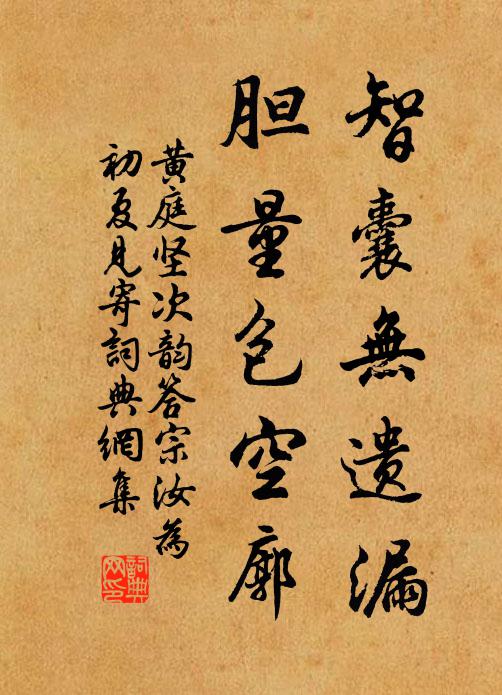 智囊無遗漏
胆量包空廓
黄庭坚次韵答宗汝為
初夏見寄詞典網集
詞典网印